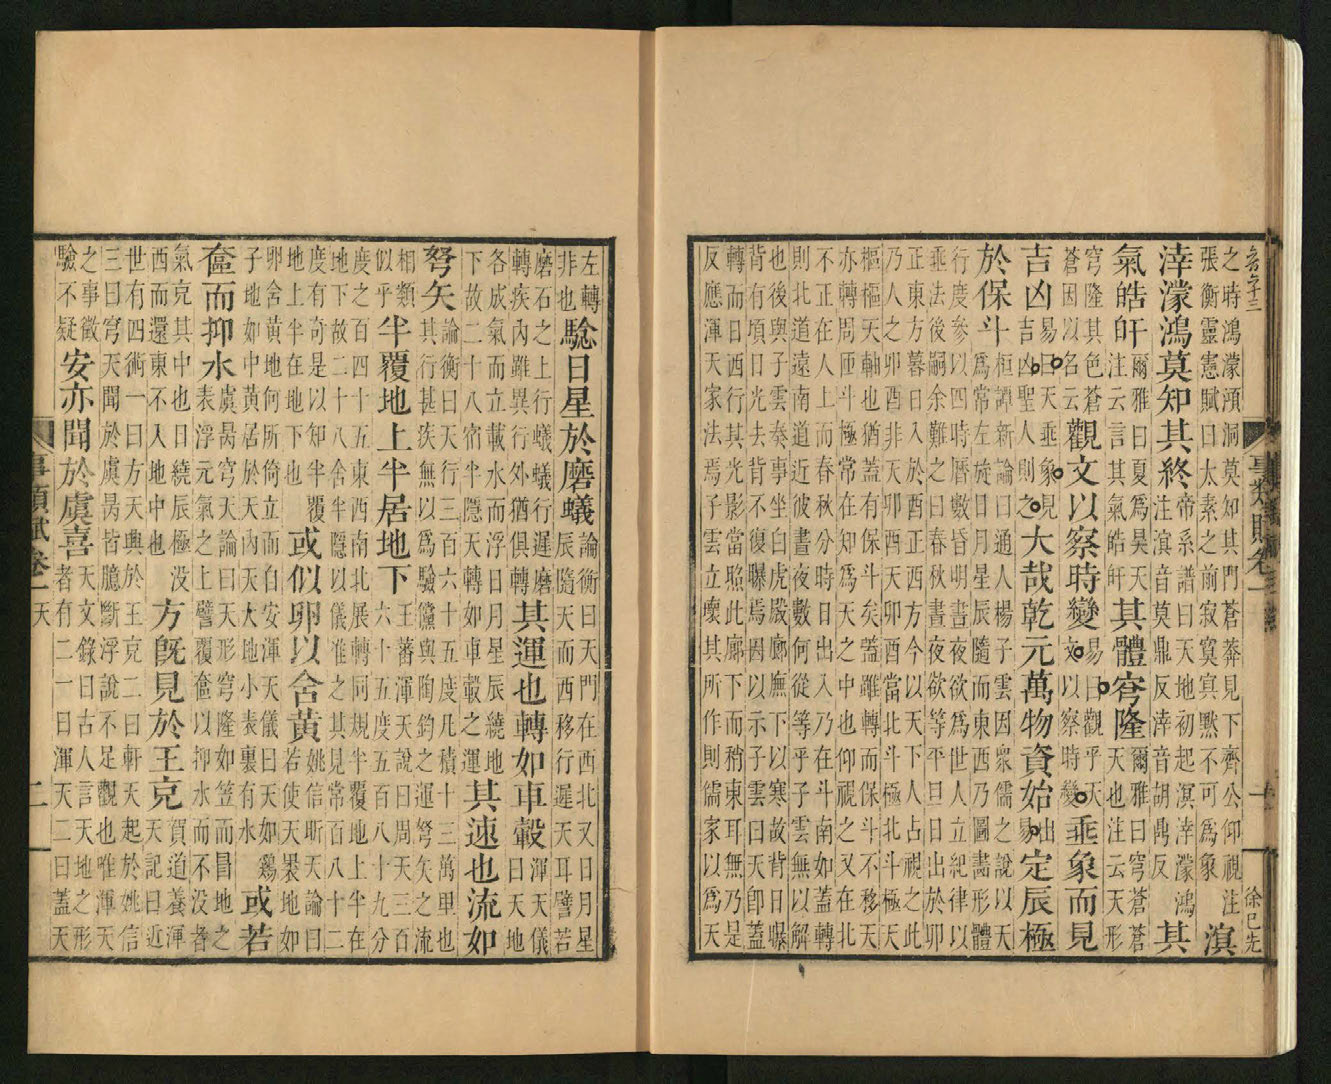 事類賦卷一
之時鴻濛澒洞莫知其門蒼莽見下齊公仰視注
張衡靈憲賦曰太素之前寂寞冥黙不可爲象
溟
涬濛鴻莫知其終
帝系譜曰天地初起溟涬濛鴻
注溟音莫鼎反涬音胡鼎反
其
氣皓旰
爾雅曰夏爲昊天
注云言其氣皓旰
其體穹隆
爾雅曰穹蒼蒼
天也注云天形
穹隆其色蒼
蒼因以名云
觀文以察時變
易曰觀乎天
文以察時變
垂象而見
吉凶
易曰天垂象見
吉凶聖人則之
大哉乾元萬物資始
出
易
定辰極
於保斗
桓譚新論曰通人楊子雲因衆儒之說以天
爲常左旋日月星辰隨而東西乃圖畫形體
行度參以四時曆數昏明晝夜欲爲世人立紀律以
垂法後嗣余難之曰春秋晝夜欲等平旦日出於卯
正東方暮日入於酉正西方今以天下人占視之此
乃人之卯酉非天卯酉天卯酉當北斗極北斗極天
樞樞天軸也猶蓋有保斗矣蓋雖轉而保斗不移天
亦轉周匝斗極常在知爲天之中也仰視之又在北
不正在人上而春秋分時日出入乃在斗南如蓋轉
則北道遠南道近彼晝夜數何從等乎子雲無以解
也後與子雲奏事坐白虎殿廊廡下以寒故背日曝
背有頃日光去背不復曝焉因以示子雲曰天卽蓋
轉而日西行其光影當照此廊下而稍東耳無乃是
反應渾天家法焉子雲立壞其所作則儒家以爲天
左轉
非也
騐日星於磨蟻
論衡曰天門在西北又日月星
辰隨天而西移行遲天耳譬若
磨石之上行蟻蟻行遲磨
轉疾內雖異行外猶俱轉
其運也轉如車轂
渾天儀
曰天地
各成氣而立載水而浮日月星辰繞地
下故二十八宿半隱天轉如車轂之運
其速也流如
弩矢
論衡曰天行三百六十五度凡積十三萬里也
其行甚疾無以爲驗儻與陶鈞之運弩矢之流
相類
似乎
半覆地上半居地下
王蕃渾天說曰周天三百
六十五度五百八十九分
度之百四十五東西南北展轉同規半覆地上半在
地下故二十八舍半隱以儀准之其見常百八十二
度有奇是以知半覆
地上半在地下也
或似卵以含黃
姚信昕天論曰
若使天裹地如
卵舍黃地何所倚立而自安渾天儀曰天如鷄
子地如中黃居於天內天大地小表裏有水
或若
奩而抑水
虞昺穹天論曰天形穹隆如笠而冒地之
表浮元氣之上譬覆奩以抑水而不没者
氣充其中也日繞辰極没
西而還東不入地中也
方旣見於王充
賀道養渾
天記曰近
世有四術一曰方天興於王充二曰軒天起於姚信
三曰穹天聞於虞昺皆臆斷浮說不足觀也惟渾天
之事徵
驗不疑
安亦聞於虞喜
天文錄曰古人言天地之形
者有二一曰渾天二曰蓋天
事類賦卷一 天 二